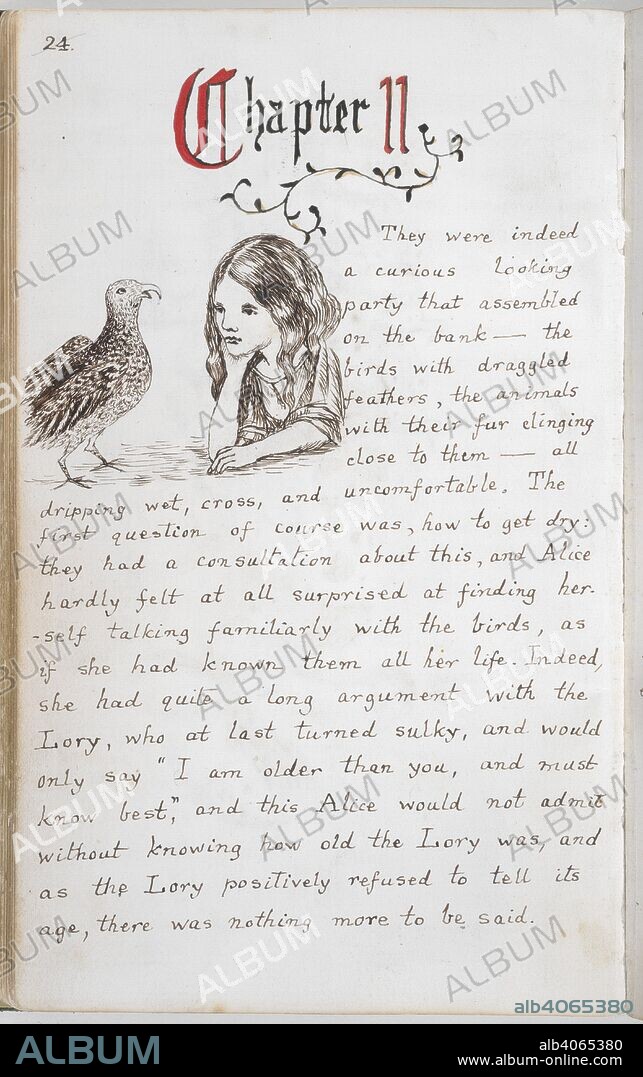 24.
Chapter II
They were indeed
a curious looking
party that assembled
on the bank — the
birds with draggled
feathers, the animals
with their fur clinging
close to them — all
dripping wet, cross, and uncomfortable. The
first question of course was, how to get dry:
they had a consultation about this, and Alice
hardly felt at all surprised at finding her-
-self talking familiarly with the birds, as
if she had known them all her life. Indeed,
she had quite a long argument with the
Lory, who at last turned sulky, and would
only say "I am older than you, and must
know best," and this Alice would not admit
without knowing how old the Lory was, and
as the Lory positively refused to tell its
age, there was nothing more to be said.
alb4065380
ALBUM
alb4065380
www.album-online.com